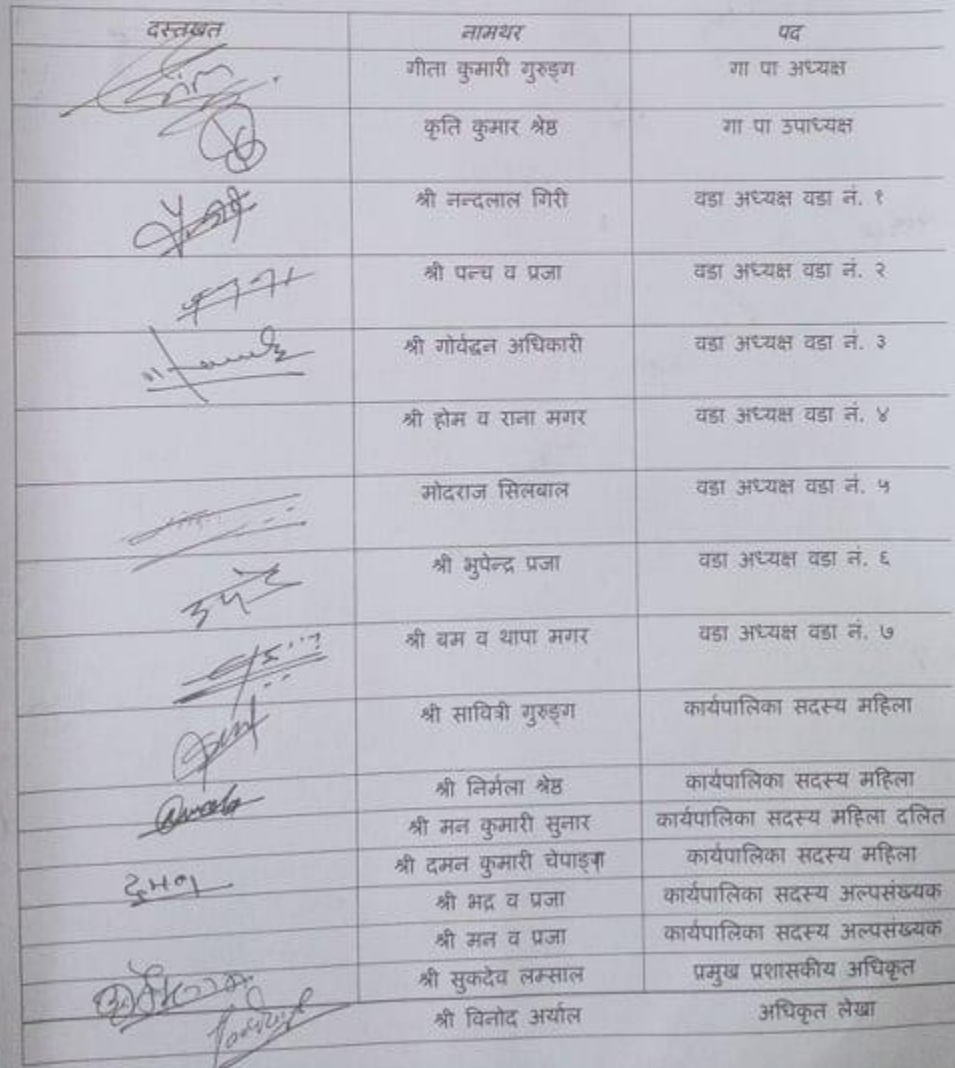 दस्तखत नामथर पद
गीता कुमारी गुरुङ्ग गा पा अध्यक्ष
कृति कुमार श्रेष्ठ गा पा उपाध्यक्ष
श्री नन्दलाल गिरी वडा अध्यक्ष वडा नं. १
श्री पन्च व प्रजा वडा अध्यक्ष वडा नं. २
श्री गोर्वद्धन अधिकारी वडा अध्यक्ष वडा नं. ३
श्री होम व राना मगर वडा अध्यक्ष वडा नं. ४
मोदराज सिलवाल वडा अध्यक्ष वडा नं. ५
श्री भुपेन्द्र प्रजा वडा अध्यक्ष वडा नं. ६
श्री बम व थापा मगर वडा अध्यक्ष वडा नं. ७
श्री सावित्री गुरुङ्ग कार्यपालिका सदस्य महिला
श्री निर्मला श्रेष्ठ कार्यपालिका सदस्य महिला
श्री मन कुमारी सुनार कार्यपालिका सदस्य महिला दलित
दमन श्री दमन कुमारी चेपाङ्ग कार्यपालिका सदस्य महिला
श्री भद्र व प्रजा कार्यपालिका सदस्य अल्पसंख्यक
श्री मन व प्रजा कार्यपालिका सदस्य अल्पसंख्यक
श्री सुकदेव लम्साल प्रमुख प्रशासकीय अधिकृत
श्री विनोद अर्याल अधिकृत लेखा